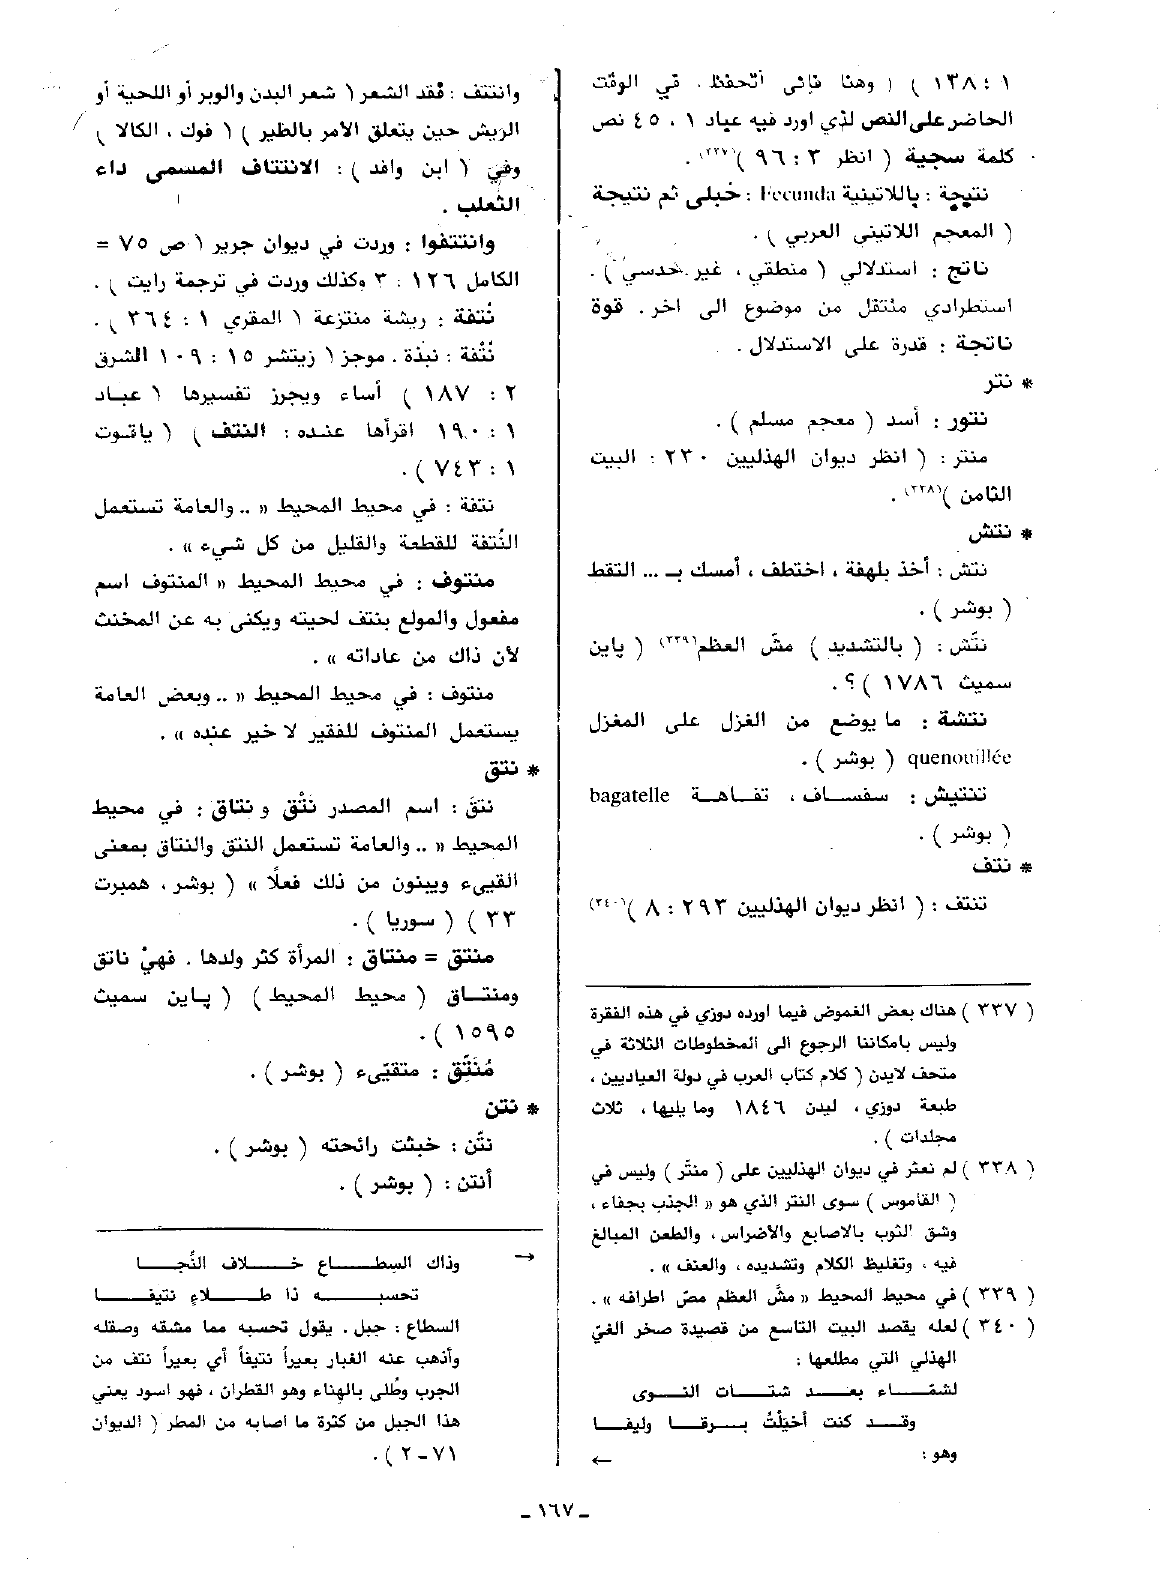 ١ : ١٣٨ ) ( وهنا فإني أتحفظ . في الوقت
الحاضر على النص لذي اورد فيه عباد ١ ، ٤٥ نص
كلمة سجية ( انظر ٣ : ٩٦ )(٣٣٧) .
نتيجة : باللاتينية Fecunda : حُبلى ثم نتيجة
( المعجم اللاتيني العربي ) .
ناتج : استدلالي ( منطقي ، غير حدسي ) .
استطرادي منتقل من موضوع الى اخر . قوة
ناتجة : قدرة على الاستدلال .
* نتر
نتور : أسد ( معجم مسلم ) .
منتر : ( انظر ديوان الهذليين ٢٣٠ : البيت
الثامن )(٣٣٨) .
* نتش
نتش : أخذ بلهفة ، اختطف ، أمسك بـ ... التقط
( بوشر ) .
نتَّش : ( بالتشديد ) مشّ العظم(٣٣٩) ( پاين
سميث ١٧٨٦ )؟ .
نتشة : ما يوضع من الغزل على المغزل
quenouillée ( بوشر ) .
تنتيش : سفساف ، تفاهة bagatelle
( بوشر ) .
* نتف
تنتف : ( انظر ديوان الهذليين ٢٩٣ : ٨ )(٣٤٠)
( ٣٣٧ ) هناك بعض الغموض فيما اورده دوزي في هذه الفقرة
وليس بامكاننا الرجوع الى المخطوطات الثلاثة في
متحف لايدن ( كلام كتاب العرب في دولة العباديين ،
طبعة دوزي ، ليدن ١٨٤٦ وما يليها ، ثلاث
مجلدات ) .
( ٣٣٨ ) لم نعثر في ديوان الهذليين على ( منتّر ) وليس في
( القاموس ) سوى النتر الذي هو « الجذب بجفاء ،
وشق الثوب بالاصابع والاضراس ، والطعن المبالغ
فيه ، وتغليظ الكلام وتشديده ، والعنف » .
( ٣٣٩ ) في محيط المحيط « مشّ العظم مصّ اطرافه » .
( ٣٤٠ ) لعله يقصد البيت التاسع من قصيدة صخر الغيّ
الهذلي التي مطلعها :
لشمّاء بعد شتات النوى
وقد كنت أخيَلْتُ برقا وليفا
وهو : ←
وانتتف : فقد الشعر ( شعر البدن والوبر أو اللحية أو
الريش حين يتعلق الامر بالطير ) ( فوك ، الكالا )
وفي ( ابن وافد ) : الانتتاف المسمى داء
الثعلب .
وانتتفوا : وردت في ديوان جرير ( ص ٧٥ =
الكامل ١٢٦ : ٣ وكذلك وردت في ترجمة رايت ) .
نُتفة : ريشة منتزعة ( المقري ١ : ٣٦٤ ) .
نُتْفة : نبذة . موجز ( زيتشر ١٥ : ١٠٩ الشرق
٢ : ١٨٧ ) أساء ويجرز تفسيرها ( عباد
١ : ١٩٠ اقرأها عنده : النتف ) ( ياقوت
١ : ٧٤٣ ) .
نتفة : في محيط المحيط « .. والعامة تستعمل
النُتفة للقطعة والقليل من كل شيء » .
منتوف : في محيط المحيط « المنتوف اسم
مفعول والمولع بنتف لحيته ويكنى به عن المخنث
لأن ذاك من عاداته » .
منتوف : في محيط المحيط « .. وبعض العامة
يستعمل المنتوف للفقير لا خير عنده » .
* نتق
نتقَ : اسم المصدر نتْق و نتاق : في محيط
المحيط « .. والعامة تستعمل النتق والنتاق بمعنى
القييء ويبنون من ذلك فعلًا » ( بوشر ، همبرت
٣٣ ) ( سوريا ) .
منتق = منتاق : المرأة كثر ولدها . فهي ناتق
ومنتاق ( محيط المحيط ) ( پاين سميث
١٥٩٥ ) .
مُنَتِّق : متقيّيء ( بوشر ) .
* نتن
نتَّن : خبثت رائحته ( بوشر ) .
أنتن : ( بوشر ) .
→ وذاك السطاع خلاف النُجا
تحسبه ذا طلاءٍ نتيفا
السطاع : جبل . يقول تحسبه مما مشقه وصقله
وأذهب عنه الغبار بعيراً نتيفاً أي بعيراً نتف من
الجرب وطُلى بالهناء وهو القطران ، فهو اسود يعني
هذا الجبل من كثرة ما اصابه من المطر ( الديوان
٧١ – ٢ ) .
– ١٦٧ –